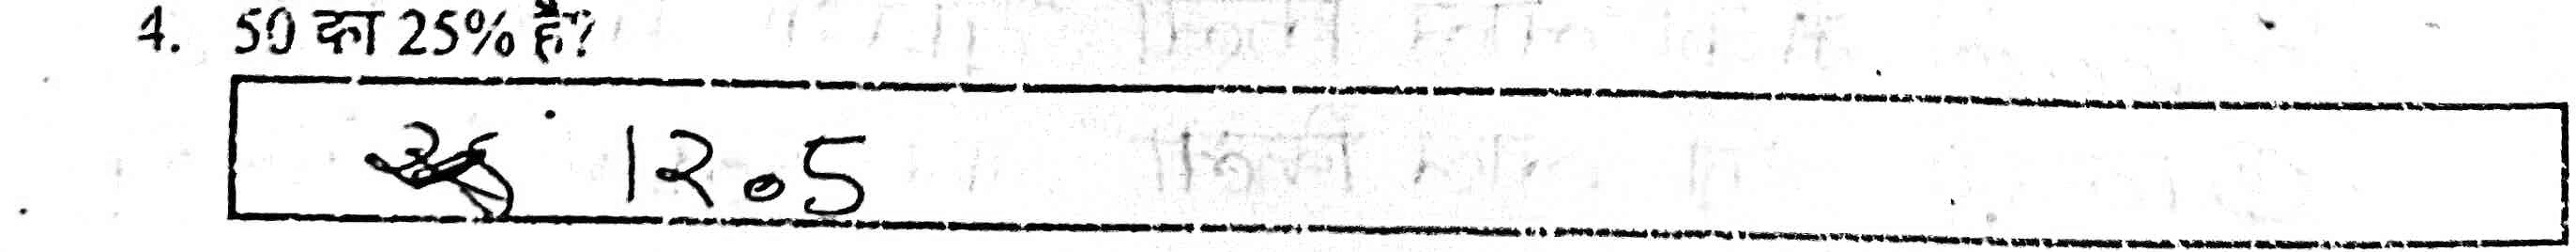 4. 50 का 25% है?
12.5